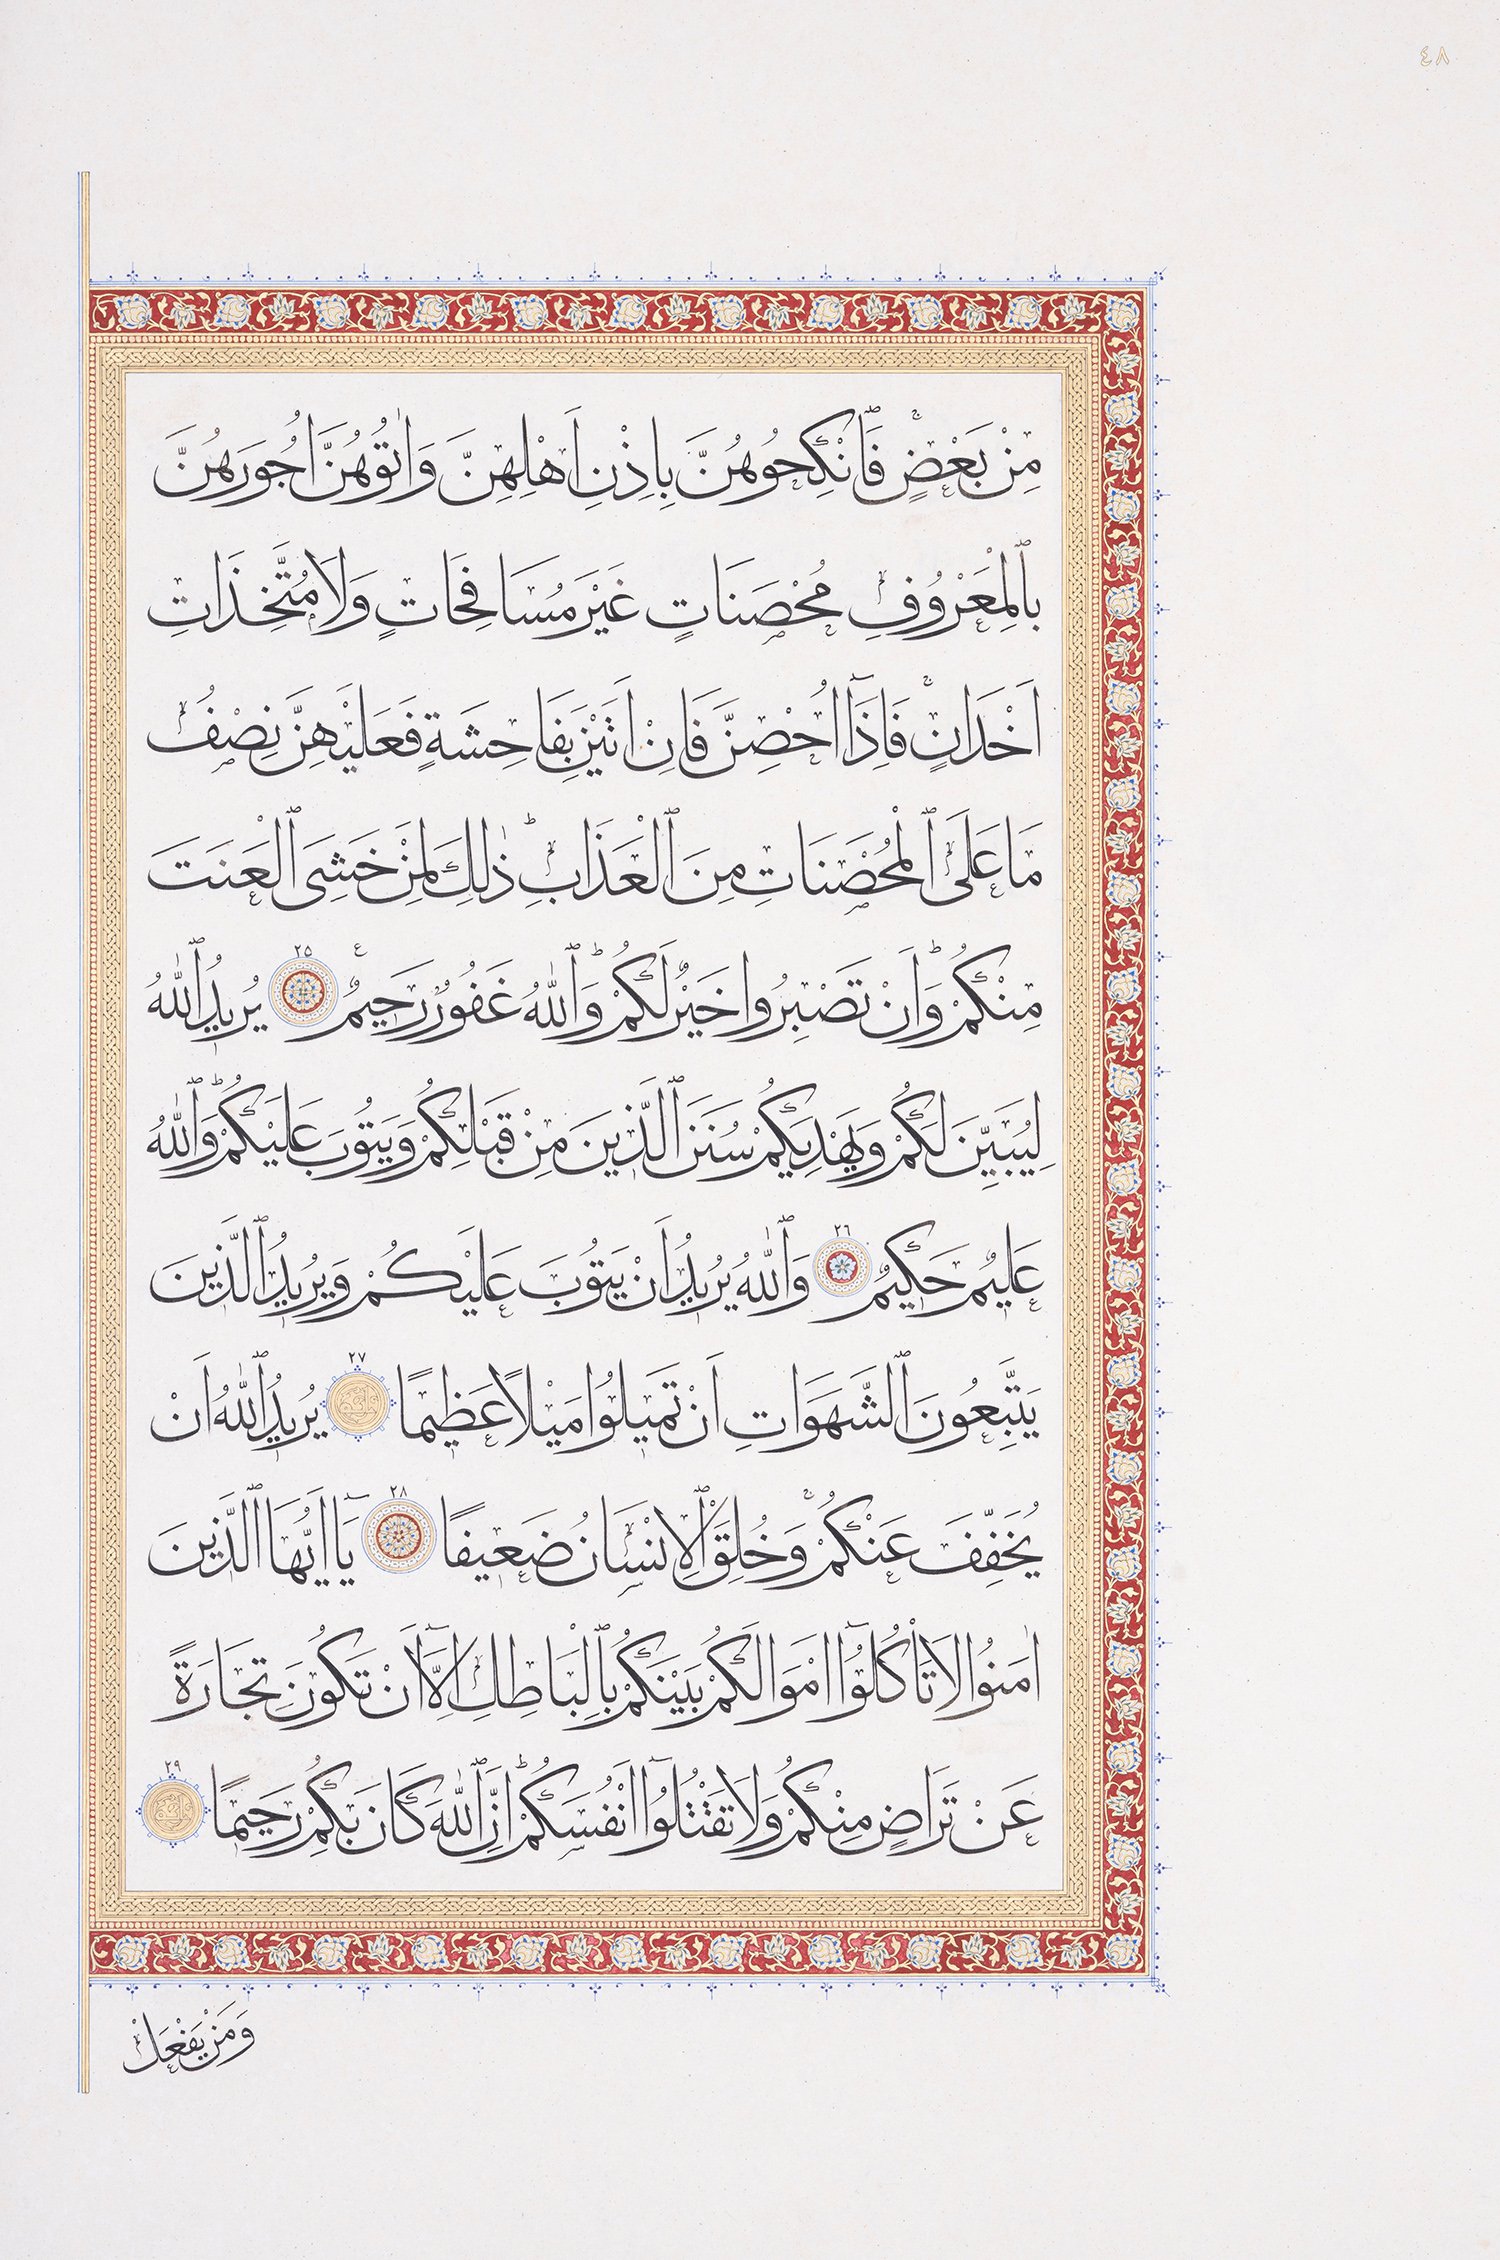 ٤٨
مِنْ بَعْضٍۚ فَٱنْكِحُوهُنَّ بِاِذْنِ اَهْلِهِنَّ وَاٰتُوهُنَّ اُجُورَهُنَّ
بِٱلْمَعْرُوفِ مُحْصَنَاتٍ غَيْرَ مُسَافِحَاتٍ وَلَا مُتَّخِذَاتِ
اَخْدَانٍۚ فَاِذَٓا اُحْصِنَّ فَاِنْ اَتَيْنَ بِفَاحِشَةٍ فَعَلَيْهِنَّ نِصْفُ
مَا عَلَى ٱلْمُحْصَنَاتِ مِنَ ٱلْعَذَابِۜ ذٰلِكَ لِمَنْ خَشِىَ ٱلْعَنَتَ
مِنْكُمْۜ وَاَنْ تَصْبِرُوا خَيْرٌ لَكُمْۜ وَٱللّٰهُ غَفُورٌ رَحِيمٌ ع ٢٥ يُرِيدُ ٱللّٰهُ
لِيُبَيِّنَ لَكُمْ وَيَهْدِيَكُمْ سُنَنَ ٱلَّذِينَ مِنْ قَبْلِكُمْ وَيَتُوبَ عَلَيْكُمْۜ وَٱللّٰهُ
عَلِيمٌ حَكِيمٌ ٢٦ وَٱللّٰهُ يُرِيدُ اَنْ يَتُوبَ عَلَيْكُمْ وَيُرِيدُ ٱلَّذِينَ
يَتَّبِعُونَ ٱلشَّهَوَاتِ اَنْ تَمِيلُوا مَيْلًا عَظِيمًا ٢٧ يُرِيدُ ٱللّٰهُ اَنْ
يُخَفِّفَ عَنْكُمْۚ وَخُلِقَ ٱلْاِنْسَانُ ضَعِيفًا ٢٨ يَٓا اَيُّهَا ٱلَّذِينَ
اٰمَنُوا لَا تَأْكُلُٓوا اَمْوَالَكُمْ بَيْنَكُمْ بِٱلْبَاطِلِ اِلَّٓا اَنْ تَكُونَ تِجَارَةً
عَنْ تَرَاضٍ مِنْكُمْ وَلَا تَقْتُلُٓوا اَنْفُسَكُمْۜ اِنَّ ٱللّٰهَ كَانَ بِكُمْ رَحِيمًا ٢٩
وَمَنْ يَفْعَلْ